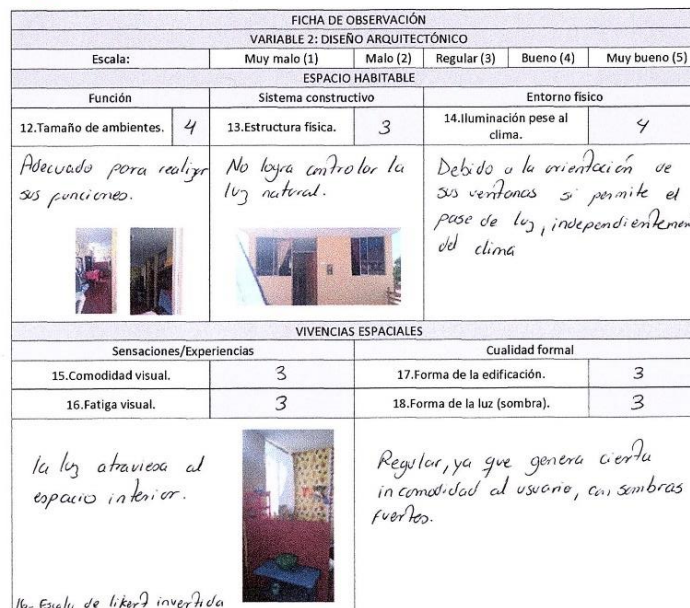 FICHA DE OBSERVACIÓN
VARIABLE 2: DISEÑO ARQUITECTÓNICO
Escala: Muy malo (1) Malo (2) Regular (3) Bueno (4) Muy bueno (5)
ESPACIO HABITABLE
Función Sistema constructivo Entorno físico
12.Tamaño de ambientes. 4 13.Estructura física. 3 14.Iluminación pese al clima. 4
Adecuado para realizar
sus funciones.
No logra controlar la
luz natural.
Debido a la orientación de
sus ventanas si permite el
pase de luz, independientemen
del clima
VIVENCIAS ESPACIALES
Sensaciones/Experiencias Cualidad formal
15.Comodidad visual. 3 17.Forma de la edificación. 3
16.Fatiga visual. 3 18.Forma de la luz (sombra). 3
la luz atraviesa al
espacio interior.
Regular, ya que genera cierta
incomodidad al usuario, con sombras
fuertes.
16- Escala de likert invertida